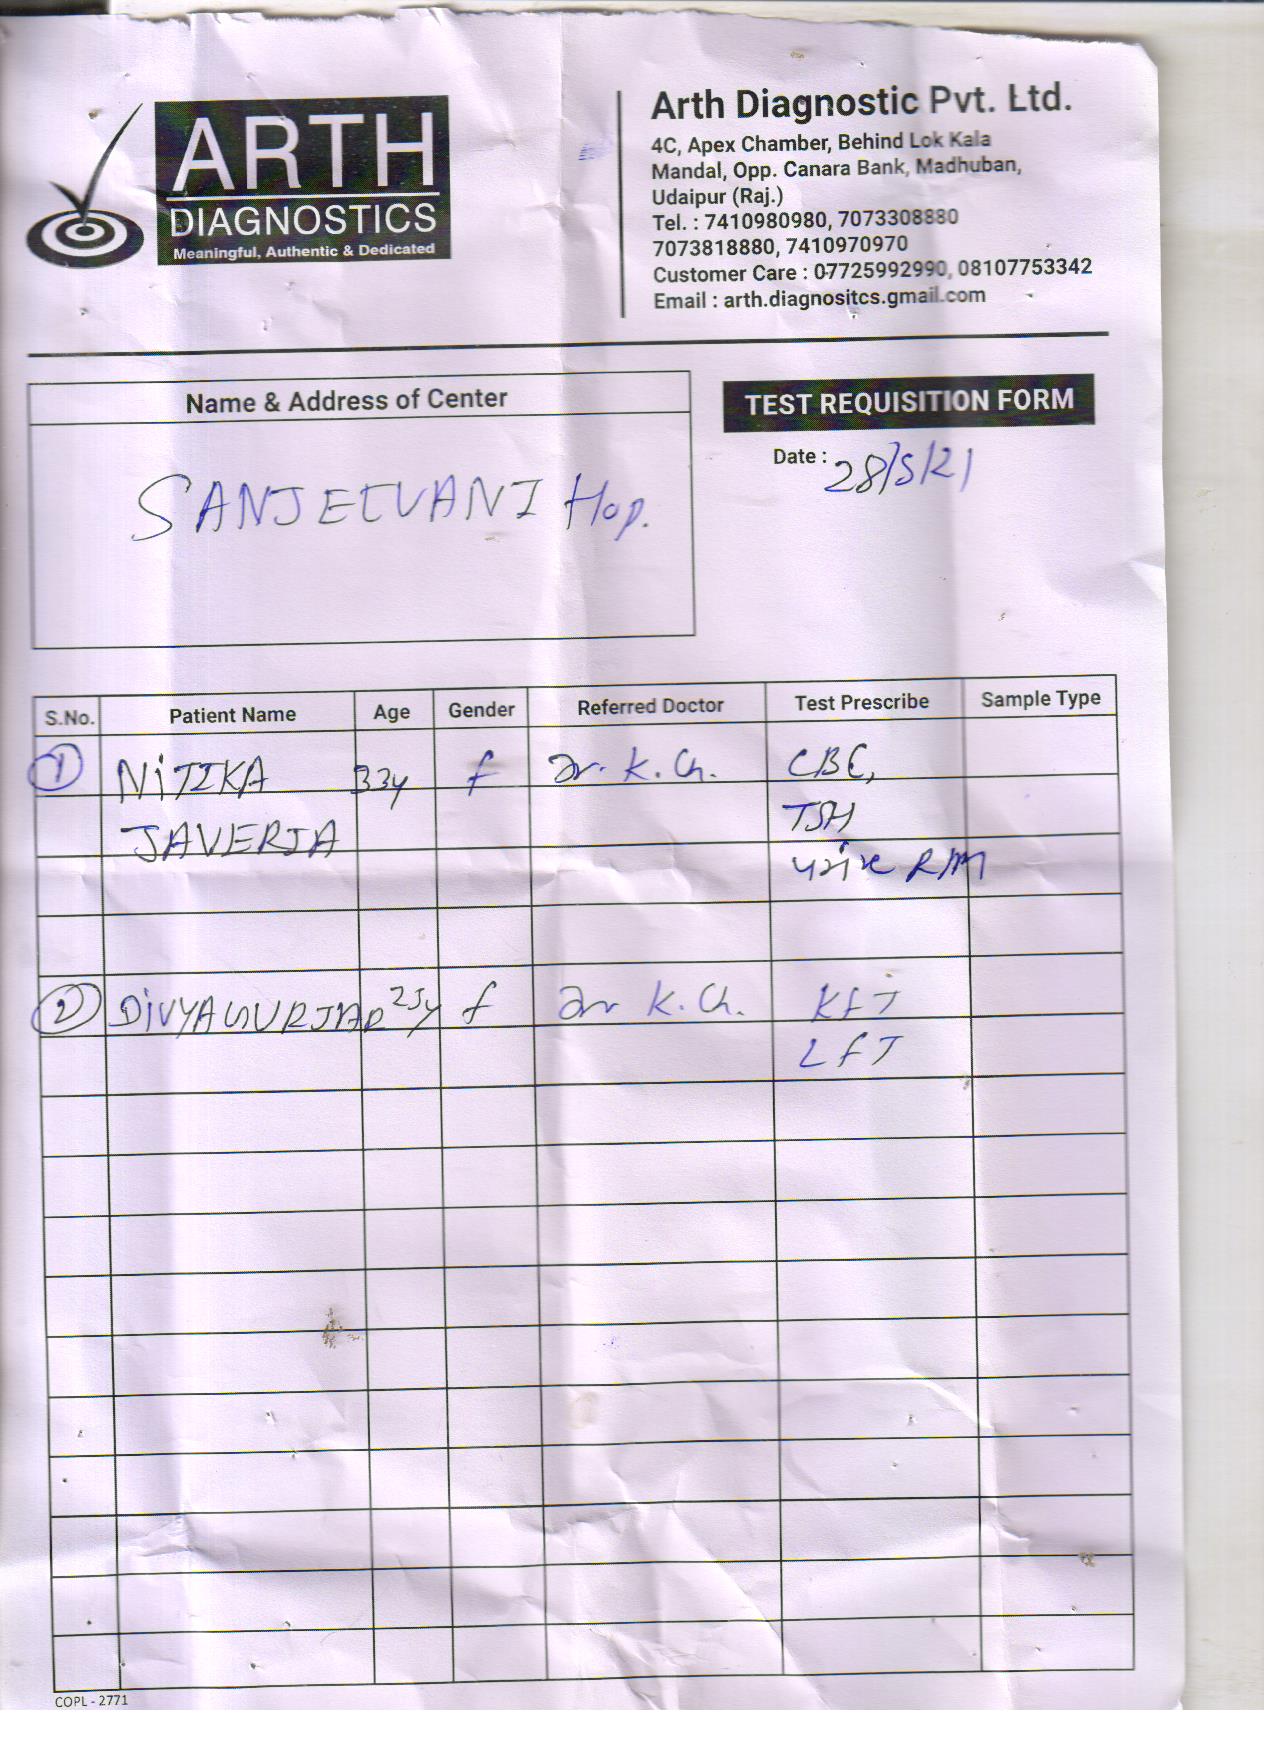 ARTH
DIAGNOSTICS
Meaningful, Authentic & Dedicated
Arth Diagnostic Pvt. Ltd.
4C, Apex Chamber, Behind Lok Kala
Mandal, Opp. Canara Bank, Madhuban,
Udaipur (Raj.)
Tel. : 7410980980, 7073308880
7073818880, 7410970970
Customer Care : 07725992990, 08107753342
Email : arth.diagnositcs.gmail.com
Name & Address of Center
TEST REQUISITION FORM
Date : 28/5/21
SANJEEVANI Hop.
S.No. Patient Name Age Gender Referred Doctor Test Prescribe Sample Type
1 NiTIKA 33y f Dr. K. Ch. CBC,
JAVERIA TSH
urine R/M
2 DiVYA GURJAR 25y f Dr K. Ch. KFT
LFT
COPL - 2771